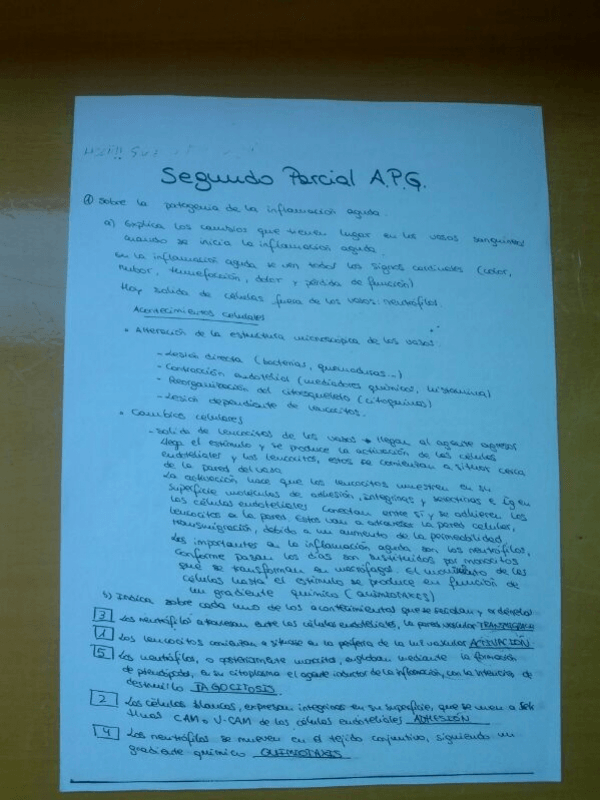 Segundo Parcial A.P.G.
① Sobre la patogenia de la inflamación aguda.
a) Explica los cambios que tienen lugar en los vasos sanguíneos
cuando se inicia la inflamación aguda.
En la inflamación aguda se ven todos los signos cardinales (calor,
rubor, tumefacción, dolor y pérdida de función)
Hay salida de células fuera de los vasos: neutrófilos.
Acontecimientos celulares
• Alteración de la estructura microscópica de los vasos:
- Lesión directa (bacterias, quemaduras...)
- Contracción endotelios (mediadores químicos, histamina)
- Reorganización del citoesqueleto (citoquinas)
- Lesión dependiente de leucocitos.
• Cambios celulares
- Salida de leucocitos de los vasos → llegan al agente agresor
llega el estímulo y se produce la activación de las células
endoteliales y los leucocitos, estos se comienzan a situar cerca
de la pared del vaso
La activación hace que los leucocitos muestren en su
superficie moléculas de adhesión, integrinas y selectinas e Ig en
las células endoteliales. Conectan entre sí y se adhieren los
leucocitos a la pared. Estos van a atravesar la pared celular,
transmigración, debido a un aumento de la permeabilidad
Los importantes en la inflamación aguda son los neutrófilos,
conforme pasan los días son sustituidos por monocitos
que se transforman en macrófagos. El movimiento de las
células hasta el estímulo se produce en función de
un gradiente químico (quimiotaxis)
b) Indica sobre cada uno de los acontecimientos que se señalan y ordénalos
3 Los neutrófilos atraviesan entre las células endoteliales, la pared vascular
1 Los leucocitos comienzan a situarse en la periferia de la luz vascular ACTIVACIÓN
5 Los neutrófilos, o posteriormente monocitos, engloban mediante la formación
de pseudópodos, en su citoplasma el agente inductor de la inflamación, con la intención de
destruirlo FAGOCITOSIS
2 Las células blancas, expresan integrinas en su superficie, que se unen a
CAM o V-CAM de las células endoteliales ADHESIÓN
4 Los neutrófilos se mueven en el tejido conjuntivo, siguiendo un
gradiente químico QUIMIOTAXIS